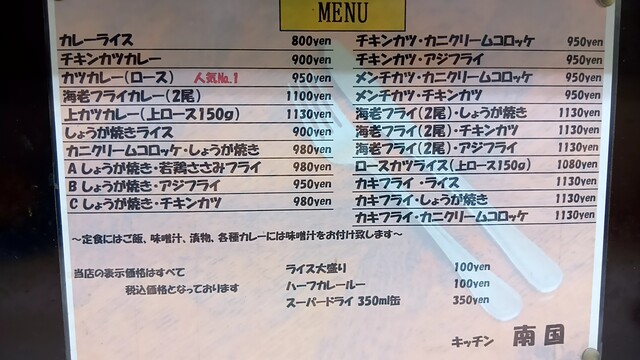 MENU
カレーライス 800yen
チキンカツカレー 900yen
カツカレー(ロース) 人気No.1 950yen
海老フライカレー(2尾) 1100yen
上カツカレー(上ロース150g) 1130yen
しょうが焼きライス 900yen
カニクリームコロッケ・しょうが焼き 980yen
A しょうが焼き・若鶏ささみフライ 980yen
B しょうが焼き・アジフライ 950yen
C しょうが焼き・チキンカツ 980yen
チキンカツ・カニクリームコロッケ 950yen
チキンカツ・アジフライ 950yen
メンチカツ・カニクリームコロッケ 950yen
メンチカツ・チキンカツ 950yen
海老フライ(2尾)・しょうが焼き 1130yen
海老フライ(2尾)・チキンカツ 1130yen
海老フライ(2尾)・アジフライ 1130yen
ロースカツライス(上ロース150g) 1080yen
カキフライ・ライス 1130yen
カキフライ・しょうが焼き 1130yen
カキフライ・カニクリームコロッケ 1130yen
〜定食にはご飯、味噌汁、漬物、各種カレーには味噌汁をお付け致します〜
当店の表示価格はすべて
税込価格となっております
ライス大盛り 100yen
ハーフカレールー 100yen
スーパードライ 350ml缶 350yen
キッチン 南国